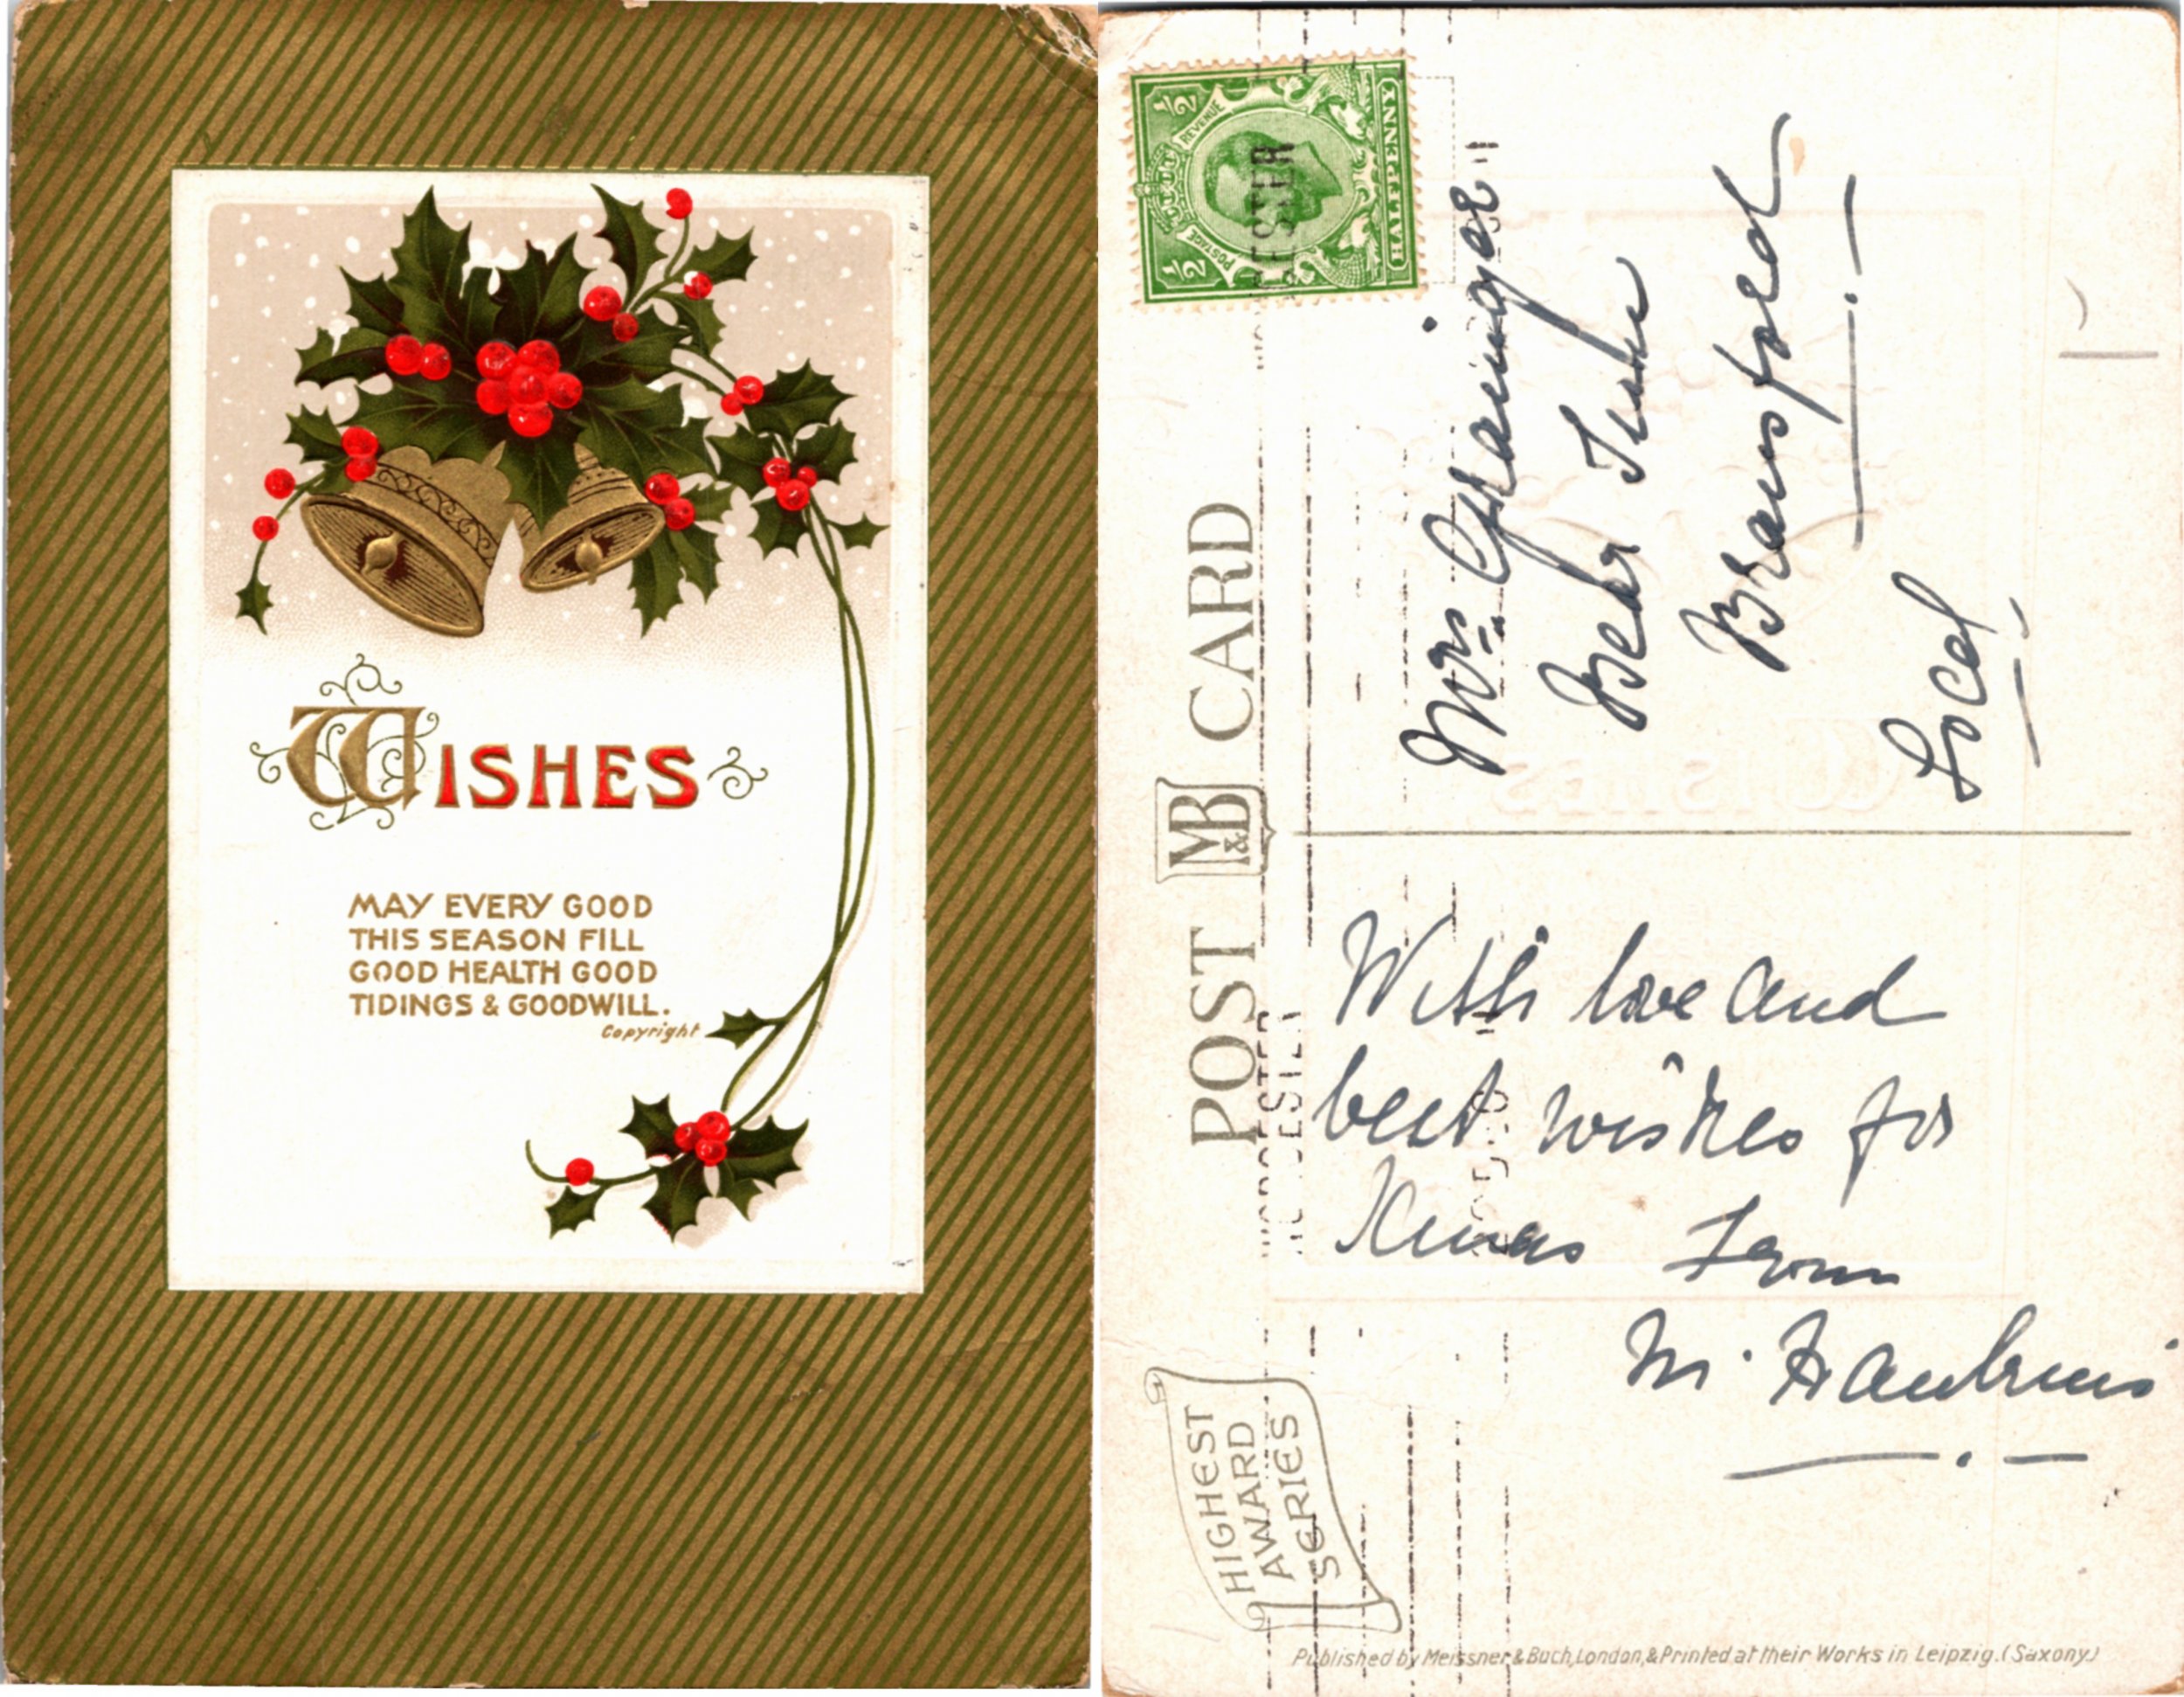 WISHES
MAY EVERY GOOD
THIS SEASON FILL
GOOD HEALTH GOOD
TIDINGS & GOODWILL.
Copyright
POST M&B CARD
½ POSTAGE REVENUE ½
HALFPENNY
Mrs Grainger
Bear
Bransford
Local
With love and
best wishes for
Xmas From
M.
HIGHEST
AWARD
SERIES
Published by Meissner & Buch, London, & Printed at their Works in Leipzig. (Saxony)